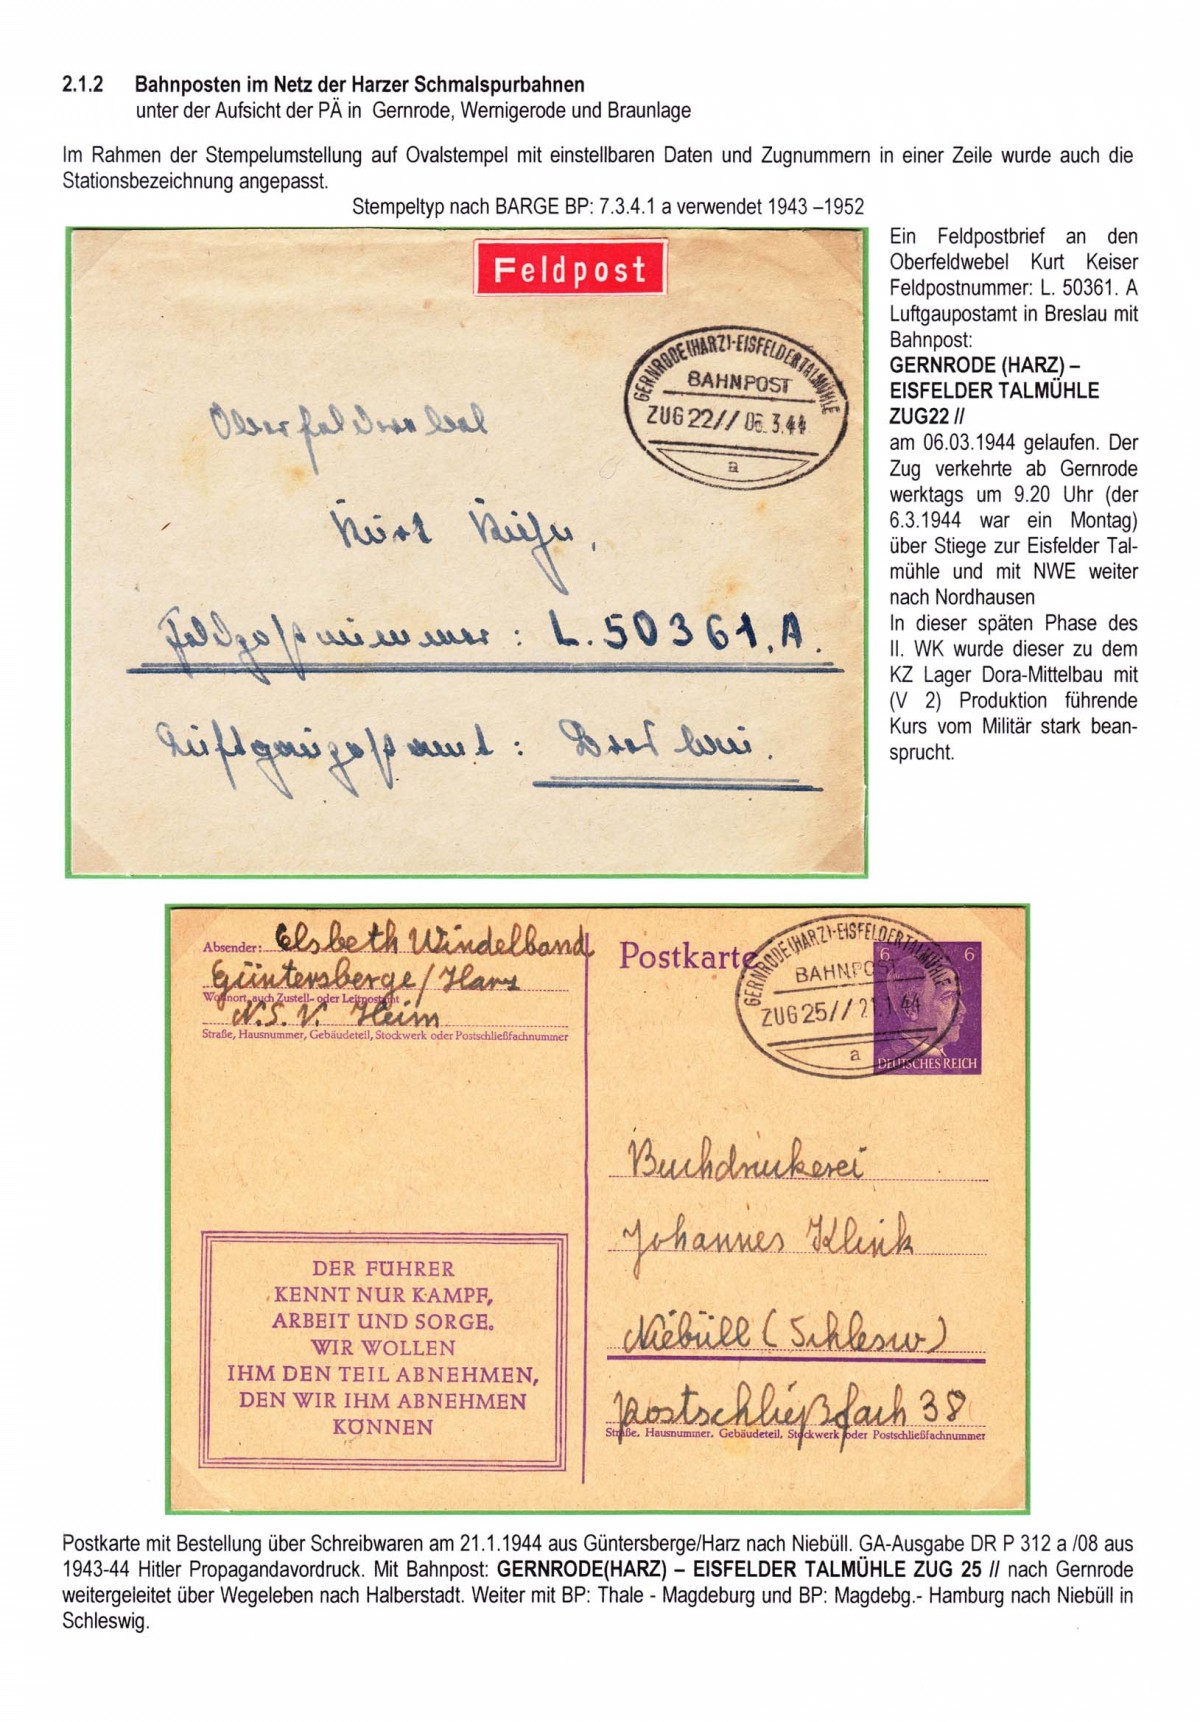 2.1.2 Bahnposten im Netz der Harzer Schmalspurbahnen
unter der Aufsicht der PÄ in Gernrode, Wernigerode und Braunlage
Im Rahmen der Stempelumstellung auf Ovalstempel mit einstellbaren Daten und Zugnummern in einer Zeile wurde auch die
Stationsbezeichnung angepasst.
Stempeltyp nach BARGE BP: 7.3.4.1 a verwendet 1943 –1952
Feldpost
GERNRODE(HARZ)-EISFELDER TALMÜHLE
BAHNPOST
ZUG 22// 06.3.44
a
Oberfeldwebel
Kurt Keiser,
Feldpostnummer: L. 50361. A.
Luftgaupostamt: Breslau.
Ein Feldpostbrief an den
Oberfeldwebel Kurt Keiser
Feldpostnummer: L. 50361. A
Luftgaupostamt in Breslau mit
Bahnpost:
GERNRODE (HARZ) –
EISFELDER TALMÜHLE
ZUG22 //
am 06.03.1944 gelaufen. Der
Zug verkehrte ab Gernrode
werktags um 9.20 Uhr (der
6.3.1944 war ein Montag)
über Stiege zur Eisfelder Tal-
mühle und mit NWE weiter
nach Nordhausen
In dieser späten Phase des
II. WK wurde dieser zu dem
KZ Lager Dora-Mittelbau mit
(V 2) Produktion führende
Kurs vom Militär stark bean-
sprucht.
Absender: Elsbeth Windelband
Güntersberge/Harz
Wohnort, auch Zustell- oder Leitpostamt
N.S.V. Heim
Straße, Hausnummer, Gebäudeteil, Stockwerk oder Postschließfachnummer
Postkarte
GERNRODE(HARZ)-EISFELDER TALMÜHLE
BAHNPOST
ZUG 25// 21.1.44
a
6 6
DEUTSCHES REICH
Buchdruckerei
Johannes Klink
Niebüll (Schlesw)
Postschließfach 38
Straße, Hausnummer, Gebäudeteil, Stockwerk oder Postschließfachnummer
DER FÜHRER
KENNT NUR KAMPF,
ARBEIT UND SORGE.
WIR WOLLEN
IHM DEN TEIL ABNEHMEN,
DEN WIR IHM ABNEHMEN
KÖNNEN
Postkarte mit Bestellung über Schreibwaren am 21.1.1944 aus Güntersberge/Harz nach Niebüll. GA-Ausgabe DR P 312 a /08 aus
1943-44 Hitler Propagandavordruck. Mit Bahnpost: GERNRODE(HARZ) – EISFELDER TALMÜHLE ZUG 25 // nach Gernrode
weitergeleitet über Wegeleben nach Halberstadt. Weiter mit BP: Thale - Magdeburg und BP: Magdebg.- Hamburg nach Niebüll in
Schleswig.